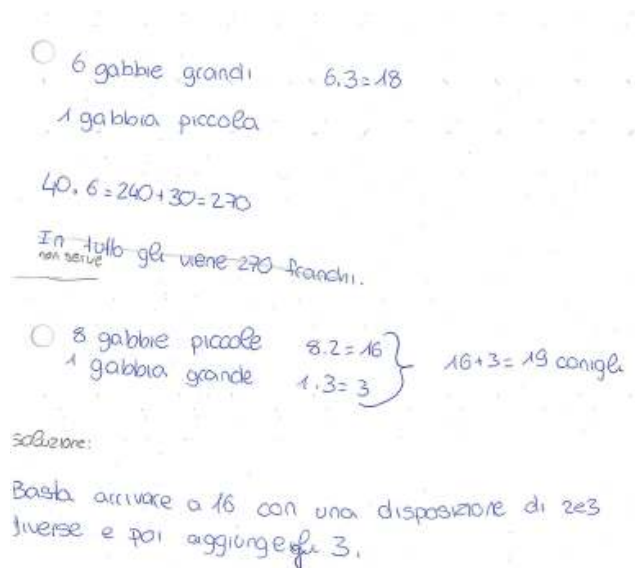 6 gabbie grandi 6.3=18
1 gabbia piccola
40.6=240+30=270
In tutto gli viene 270 franchi.
non serve
8 gabbie piccole 8.2=16
1 gabbia grande 1.3=3
16+3=19 conigli
soluzione:
Basta arrivare a 16 con una disposizione di 2e3
diverse e poi aggiunge 3.